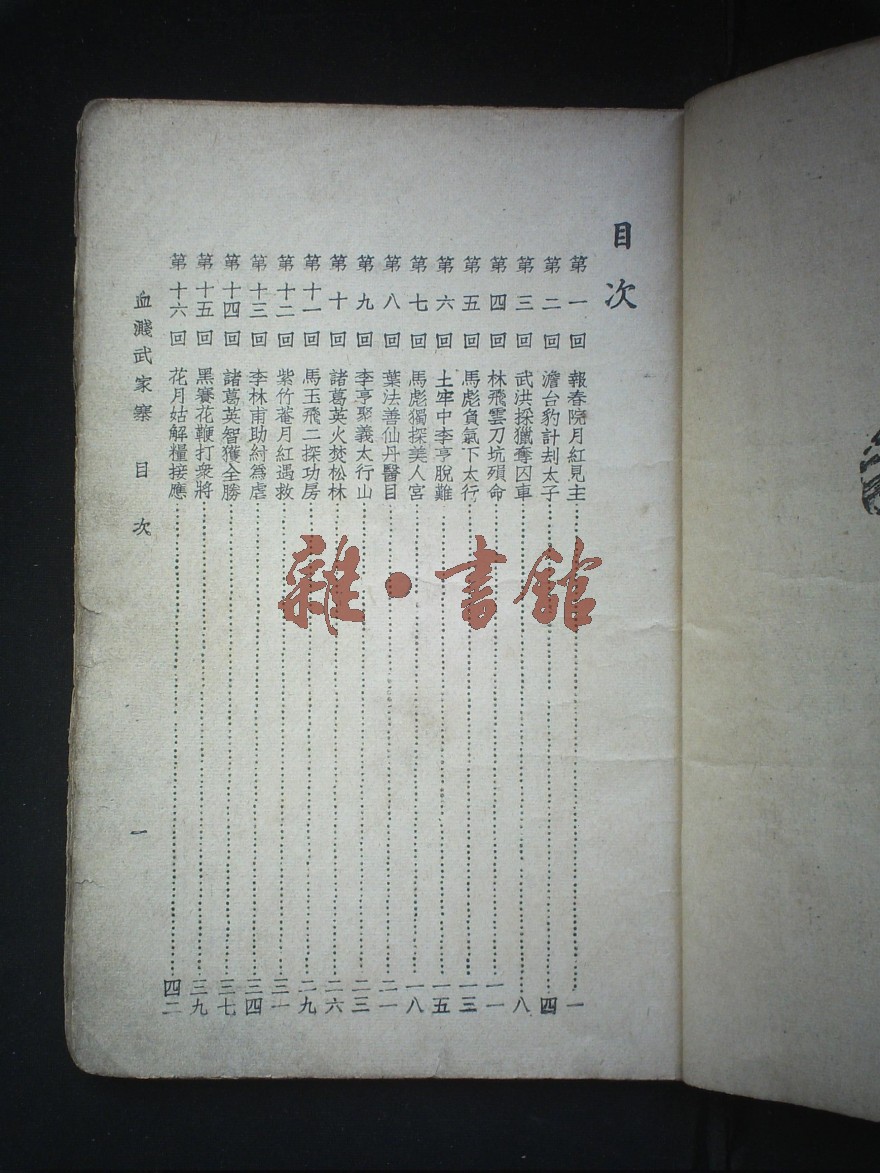 目次
第一回 報春院月紅見主 一
第二回 澹台豹計刦太子 四
第三回 武洪採獵奪囚車 八
第四回 林飛雲刀坑殞命 一一
第五回 馬彪負氣下太行 一三
第六回 土牢中李亨脫難 一五
第七回 馬彪獨探美人宮 一八
第八回 葉法善仙丹醫目 二一
第九回 李亨聚義太行山 二三
第十回 諸葛英火焚松林 二六
第十一回 馬玉飛二探功房 二九
第十二回 紫竹菴月紅遇救 三一
第十三回 李林甫助紂爲虐 三四
第十四回 諸葛英智獲全勝 三七
第十五回 黑賽花鞭打衆將 三九
第十六回 花月姑解糧接應 四二
血濺武家寨 目次 一
雜·書館